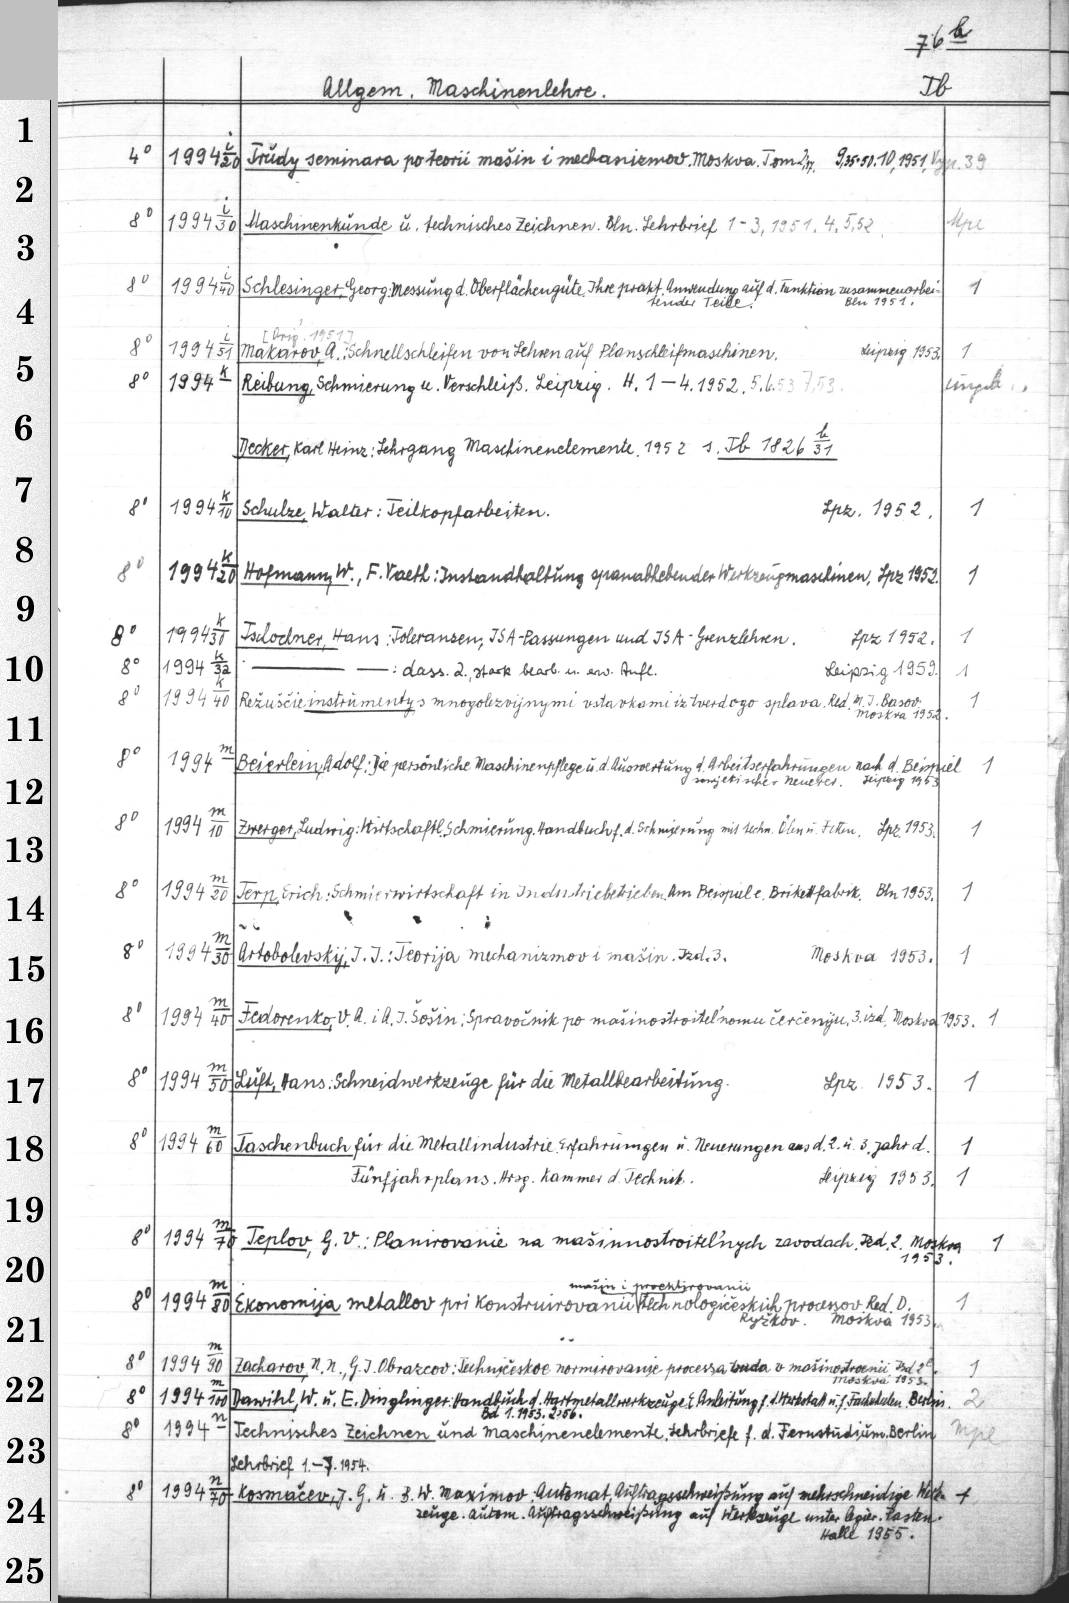 76 b
Allgem. Maschinenlehre. Ib
1
4° 1994 i/20 Trudy seminara po teorii mašin i mechanizmov. Moskva. Tom 2, 9,35-50. 10, 1951, Vyp. 39
2
8° 1994 i/30 Maschinenkunde u. technisches Zeichnen. Bln. Lehrbrief 1-3, 1951. 4. 5,52. Mpl
3
8° 1994 i/40 Schlesinger, Georg: Messung d. Oberflächengüte. Ihre prakt. Anwendung auf d. Funktion zusammenarbei- 1
tender Teile. Bln 1951.
4
[Orig. 1951]
8° 1994 i/51 Makarov, A.: Schnellschleifen von Lehren auf Planschleifmaschinen. Leipzig 1953. 1
5
8° 1994 k Reibung, Schmierung u. Verschleiß. Leipzig. H. 1-4. 1952. 5.6.53 7,53. ungeb.
6
Decker, Karl Heinz: Lehrgang Maschinenelemente. 1952 s. Ib 1826 b/31
7
8° 1994 k/10 Schulze, Walter: Teilkopfarbeiten. Lpz. 1952. 1
8
8° 1994 k/20 Hofmann, W., F. Vaeth: Instandhaltung spanabhebender Werkzeugmaschinen, Lpz 1952. 1
9
8° 1994 k/30 Tschochner, Hans: Toleranzen, ISA-Passungen und ISA-Grenzlehren. Lpz 1952. 1
10
8° 1994 k/32 — —: dass. 2., stark bearb. u. erw. Aufl. Leipzig 1959. 1
8° 1994 k/40 Režuščie instrumenty s mnogolezvijnymi vstavkami iz tverdogo splava. Red. M. I. Basov. 1
Moskva 1952.
11
8° 1994 m Beierlein, Adolf: Die persönliche Maschinenpflege u. d. Auswertung d. Arbeitserfahrungen nach d. Beispiel 1
sowjetischer Neuerer. Leipzig 1953
12
8° 1994 m/10 Zwerger, Ludwig: Wirtschaftl. Schmierung. Handbuch f. d. Schmierung mit techn. Ölen u. Fetten. Lpz. 1953. 1
13
8° 1994 m/20 Terp, Erich: Schmierwirtschaft in Industriebetrieben. Am Beispiel e. Brikettfabrik. Bln 1953. 1
14
8° 1994 m/30 Artobolevskij, I. I.: Teorija mechanizmov i mašin. Izd. 3. Moskva 1953. 1
15
8° 1994 m/40 Fedorenko, V. A. i A. I. Šošin: Spravočnik po mašinostroitel'nomu čerčeniju, 3. izd. Moskva 1953. 1
16
8° 1994 m/50 Luft, Hans: Schneidwerkzeuge für die Metallbearbeitung. Lpz. 1953. 1
17
8° 1994 m/60 Taschenbuch für die Metallindustrie. Erfahrungen u. Neuerungen aus d. 2. u. 3. Jahr d. 1
18
Fünfjahrplans. Hrsg. Kammer d. Technik. Leipzig 1953. 1
19
8° 1994 m/70 Teplov, G. V.: Planirovanie na mašinnostroitel'nych zavodach. Izd. 2. Moskva 1
1953.
20
mašin i proektirovanii
8° 1994 m/80 Ėkonomija metallov pri konstruirovanii technologičeskich processov. Red. D. 1
Ryžkov. Moskva 1953.
21
8° 1994 m/90 Zacharov, N. N., G. I. Obrazcov: Techničeskoe normirovanie processa truda v mašinostroenii. Izd. 2e 1
Moskva 1953.
22
8° 1994 m/100 Dawihl, W. u. E. Dinglinger: Handbuch d. Hartmetallwerkzeuge. E. Anleitung f. d. Werkstatt u. f. Fachschulen. Berlin. 2
Bd 1. 1953. 2,56.
8° 1994 n Technisches Zeichnen und Maschinenelemente. Lehrbriefe f. d. Fernstudium. Berlin Mpl
23
Lehrbrief 1.-7. 1954.
8° 1994 n/70 Kosmačev, I. G. u. B. W. Maximov: Automat. Auftragsschweißung auf mehrschneidige Werk- 1
24
zeuge. Autom. Auftragsschweißung auf Werkzeuge unter legier. Pasten.
Halle 1955.
25